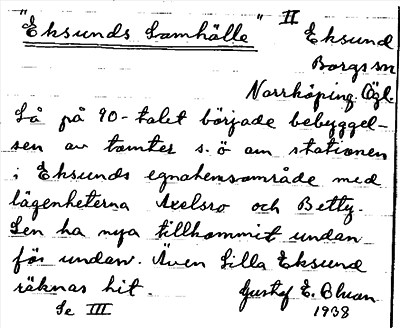 "Eksunds Samhälle" II
Eksund
Borgs sn
Norrköping Ögl.
Så på 90-talet började bebyggel-
sen av tomter s.ö om stationen
i Eksunds egnahemsområde med
lägenheterna Axelsro och Betty.
Sen ha nya tillkommit undan
för undan. Även Lilla Eksund
räknas hit. Gustaf E. Bluan
Se III 1938